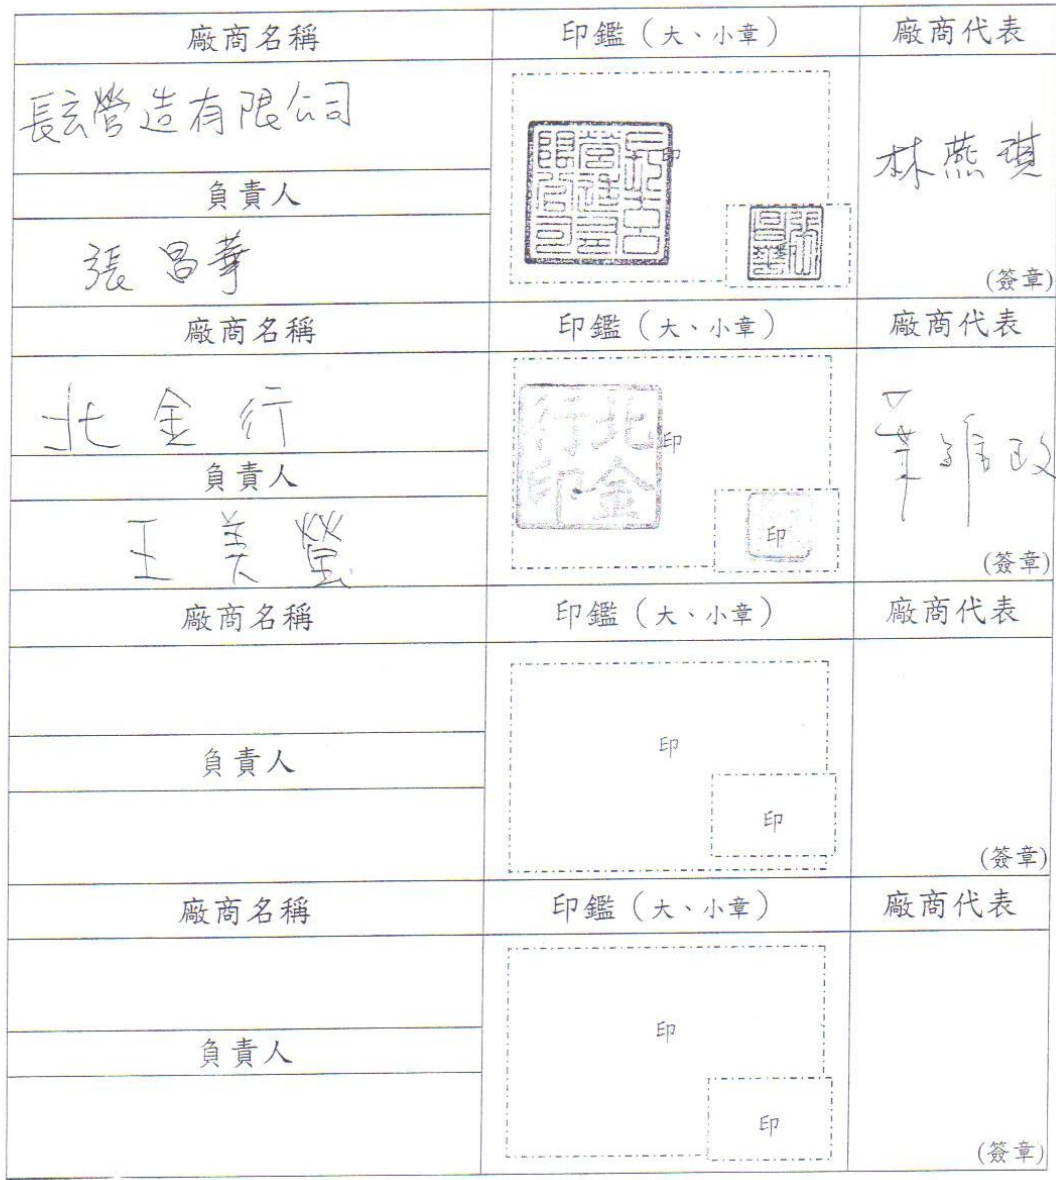 廠商名稱 印鑑（大、小章） 廠商代表
長玄營造有限公司
印
林燕琪
負責人
張昌華
昌華
(簽章)
廠商名稱 印鑑（大、小章） 廠商代表
北金行
北金行印
印
負責人
王美螢
印
(簽章)
廠商名稱 印鑑（大、小章） 廠商代表
印
負責人
印
(簽章)
廠商名稱 印鑑（大、小章） 廠商代表
印
負責人
印
(簽章)